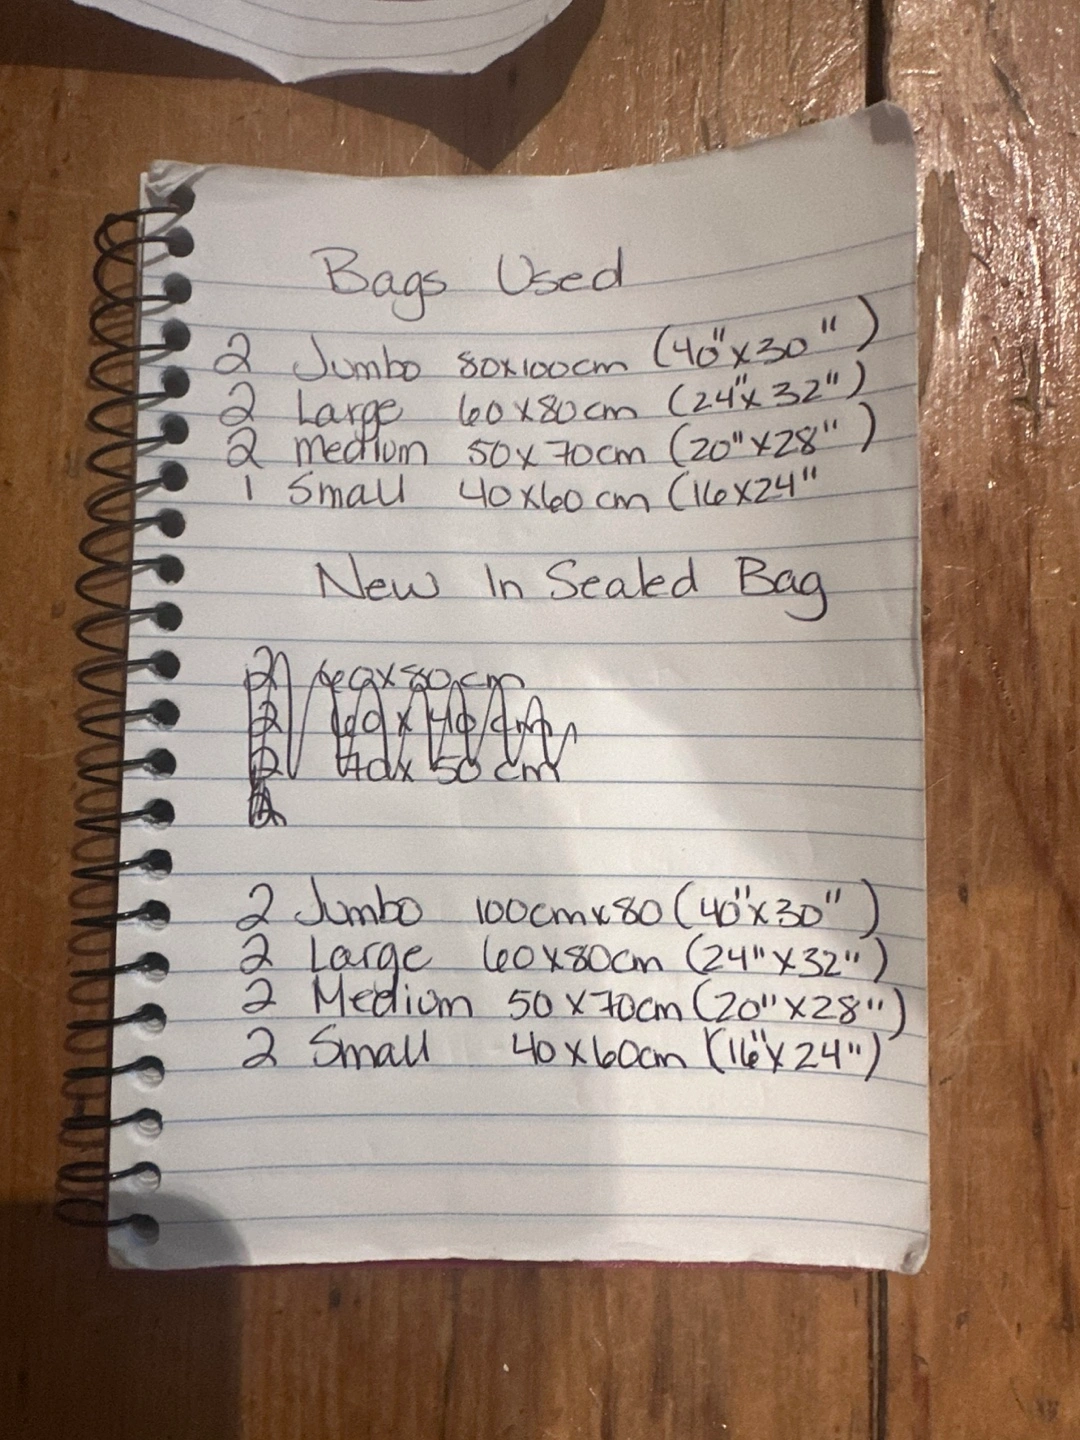 Bags Used
2 Jumbo 80x100cm (40"x30")
2 Large 60x80cm (24"x32")
2 medium 50x70cm (20"x28")
1 Small 40x60cm (16x24"
New In Sealed Bag
2 60x80 cm
2 60x40 cm
2 70x50 cm
2 Jumbo 100cmx80 (40"x30")
2 Large 60x80cm (24"x32")
2 Medium 50x70cm (20"x28")
2 Small 40x60cm (16"x24")